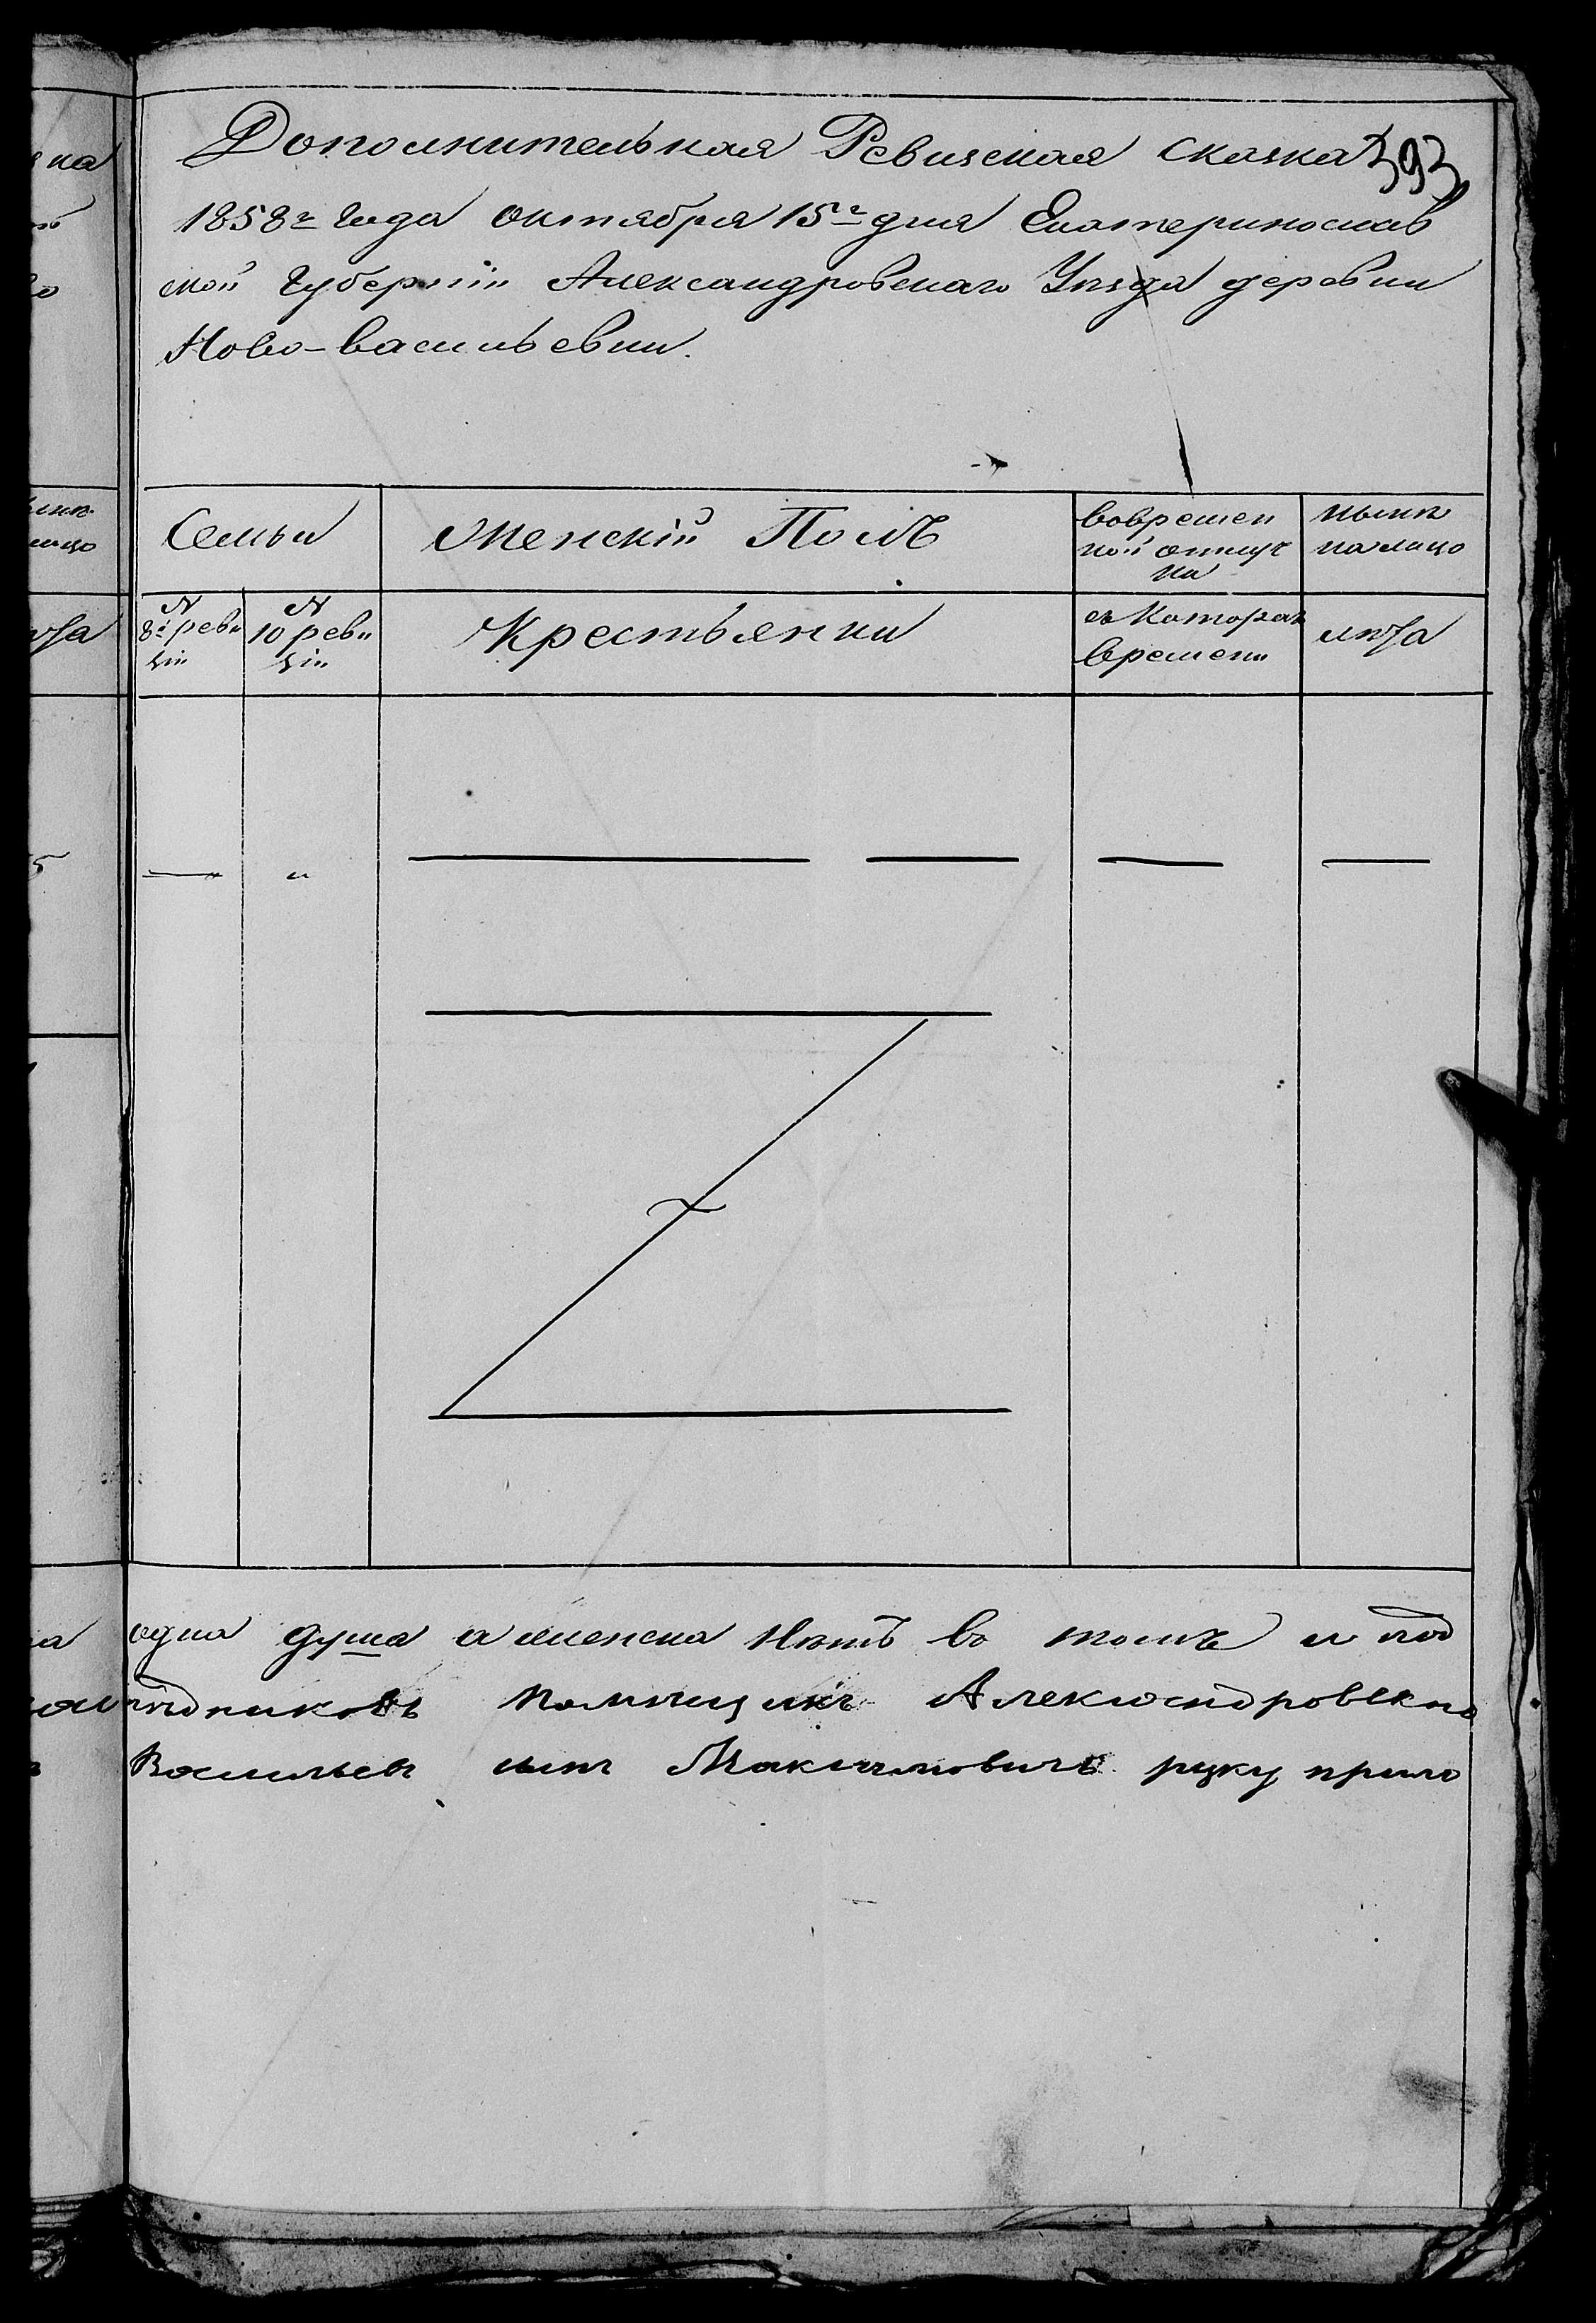 Дополнительная Ревизская сказка 393
1858г года октября 15г дня Екатеринослав
ской Губерніи Александровскаго Уѣзда деревни
Ново-васильевки.
Семьи
Женскій Полъ
во времен
ной отлуч
ки
нынѣ
на лицо
N
8й реви
зіи
N
10 реви
зіи
Крестьянки
съ Котораго
времени
лѣта
одна душа а женска Нѣтъ во томъ и под
помѣщикъ Александровско
Васильевъ сынъ Максимовичъ руку прило